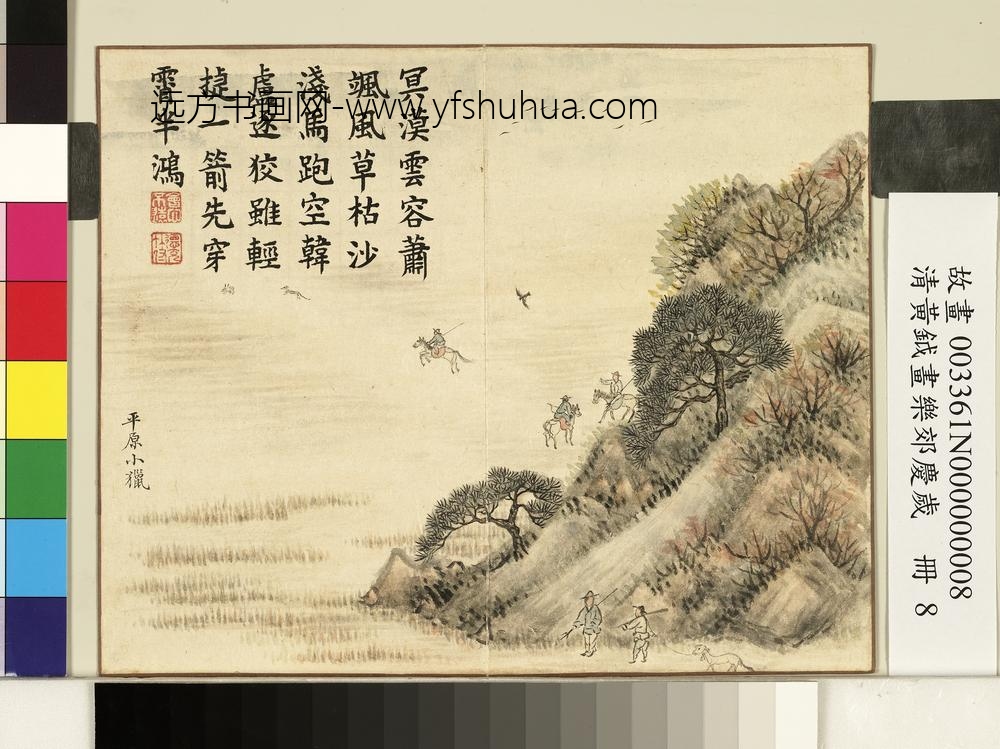 冥漠雲容蕭
颯風草枯沙
淺馬跑空韓
盧逐狡雖輕
捷一箭先穿
霄半鴻
平原小獵
远方书画网-www.yfshuhua.com
故畫 003361N000000008
清黃鉞畫樂郊慶歲 冊 8